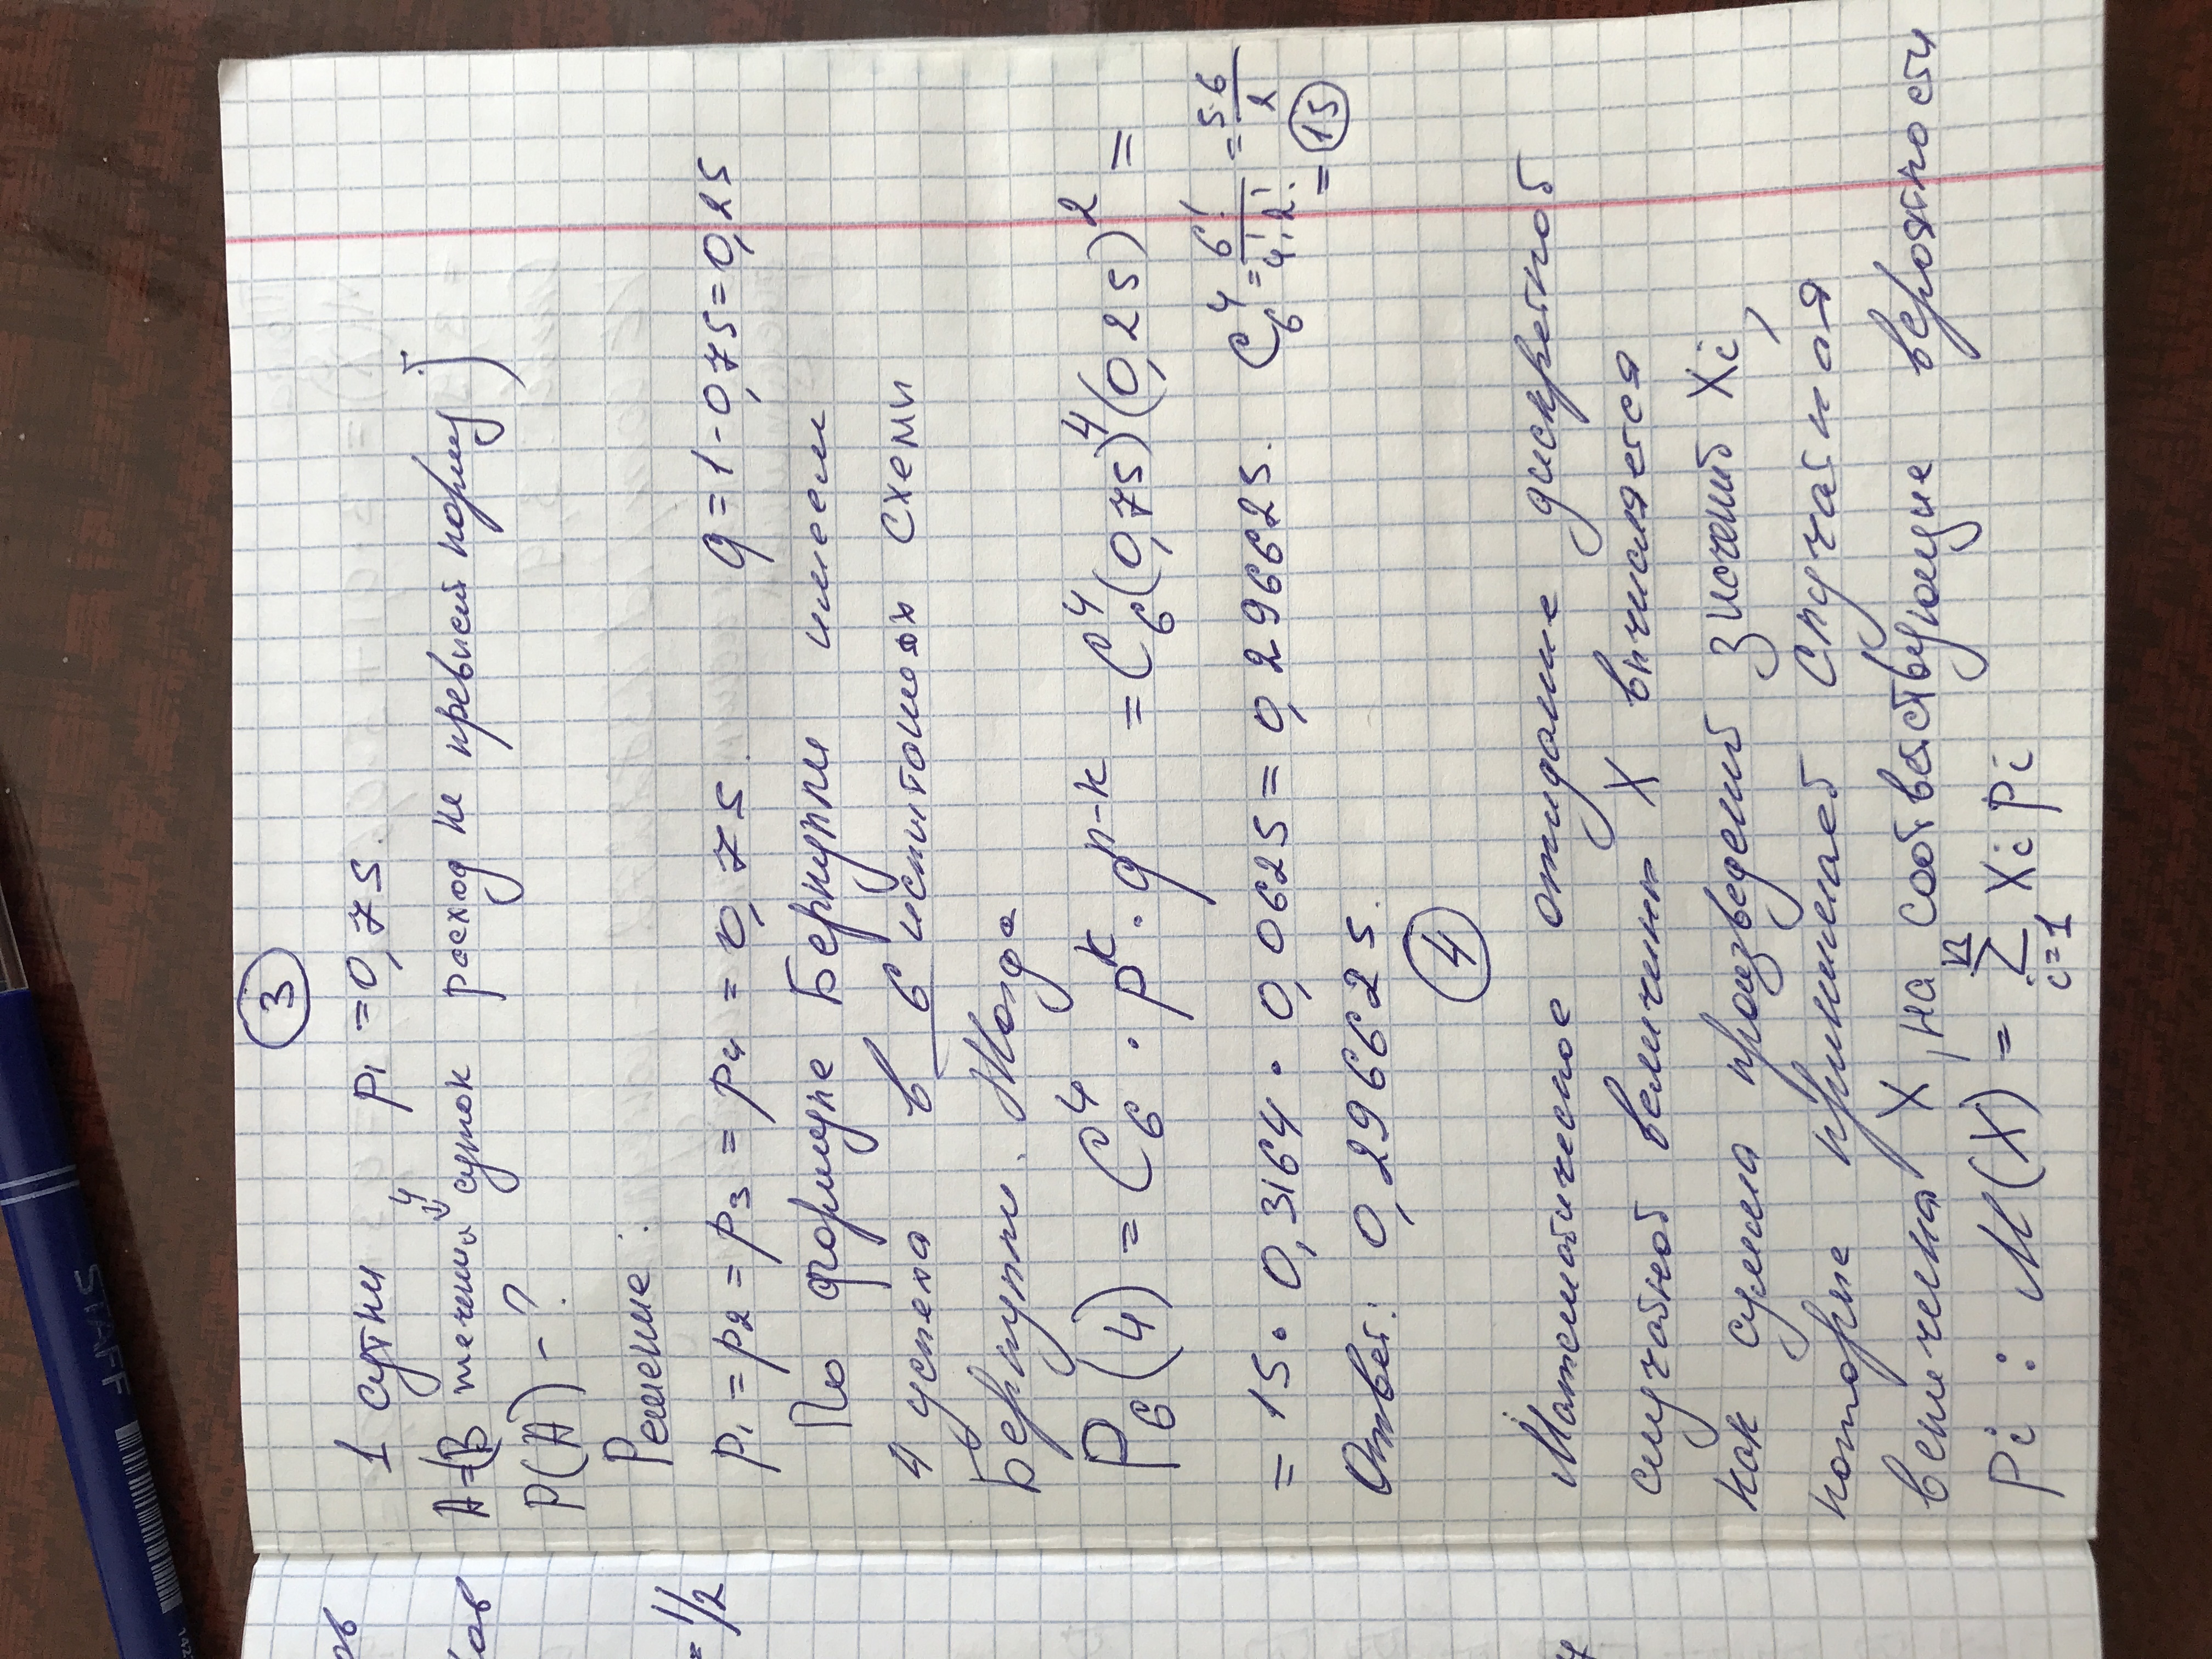 ③
1 сутки p₁ = 0,75.
A = (В течении 4 суток расход не превысит норму)
P(A) - ?
Решение:
p₁ = p₂ = p₃ = p₄ = 0,75. q = 1 - 0,75 = 0,25
По формуле Бернулли имеем
4 успеха в 6 испытаниях схеми
Бернулли. Тогда
P₆(4) = C₆⁴ · pᵏ · qⁿ⁻ᵏ = C₆⁴ (0,75)⁴ (0,25)² =
= 15 · 0,3164 · 0,0625 = 0,296625. C₆⁴ = 6!/4!·2! = 5·6/2
= ⑮
Ответ: 0,296625.
④
Математическое ожидание дискретной
случайной величини X вичисляется
как сумма произведений значений Xi,
которие принимает случайная
величина X, на соответствующие вероятности
Pi: M(X) = ∑ᵢ₌₁ⁿ Xi Pi
ов
ков
= 1/2
STAFF